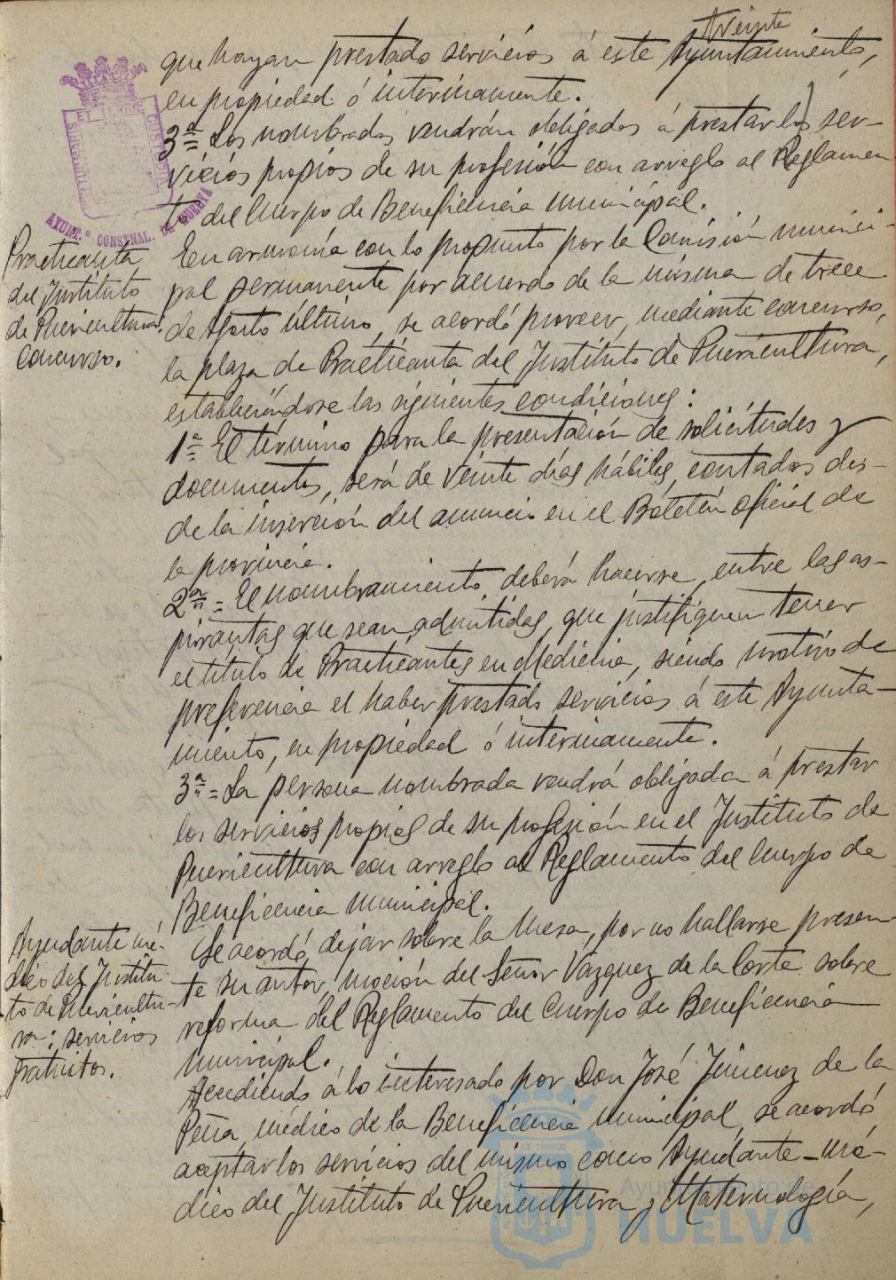 treinta
que hayan prestado servicios á este Ayuntamiento,
en propiedad ó interinamente.
3ª = Los nombrados vendrán obligados á prestar los ser-
vicios propios de su profesión con arreglo al Reglamen
to del Cuerpo de Beneficencia municipal.
AYUNT.º CONSTNAL. DE HUELVA
Practicanta
del Instituto
de Puericultura.
Concurso.
En armonía con lo propuesto por la Comisión munici-
pal permanente por acuerdo de la misma de trece
de Agosto último, se acordó proveer, mediante concurso,
la plaza de Practicanta del Instituto de Puericultura,
estableciéndose las siguientes condiciones:
1ª = El término para la presentación de solicitudes y
documentos, será de veinte días hábiles, contados des-
de la inserción del anuncio en el Boletín oficial de
la provincia.
2ª = El nombramiento deberá hacerse, entre las as-
pirantas que sean admitidas, que justifiquen tener
el título de Practicantes en Medicina, siendo motivo de
preferencia el haber prestado servicios á este Ayunta-
miento, en propiedad ó interinamente.
3ª = La persona nombrada vendrá obligada á prestar
los servicios propios de su profesión en el Instituto de
Puericultura con arreglo al Reglamento del Cuerpo de
Beneficencia municipal.
Se acordó dejar sobre la mesa, por no hallarse presen-
te su autor, moción del Señor Vázquez de la Corte sobre
reforma del Reglamento del Cuerpo de Beneficencia
municipal.
Ayudante mé-
dico del Institu-
to de Puericultu-
ra: servicios
gratuitos.
Accediendo á lo interesado por Don José Jimenez de la
Peña, médico de la Beneficencia municipal, se acordó
aceptar los servicios del mismo como Ayudante-mé-
dico del Instituto de Puericultura y Maternología,
Ayuntamiento de
HUELVA